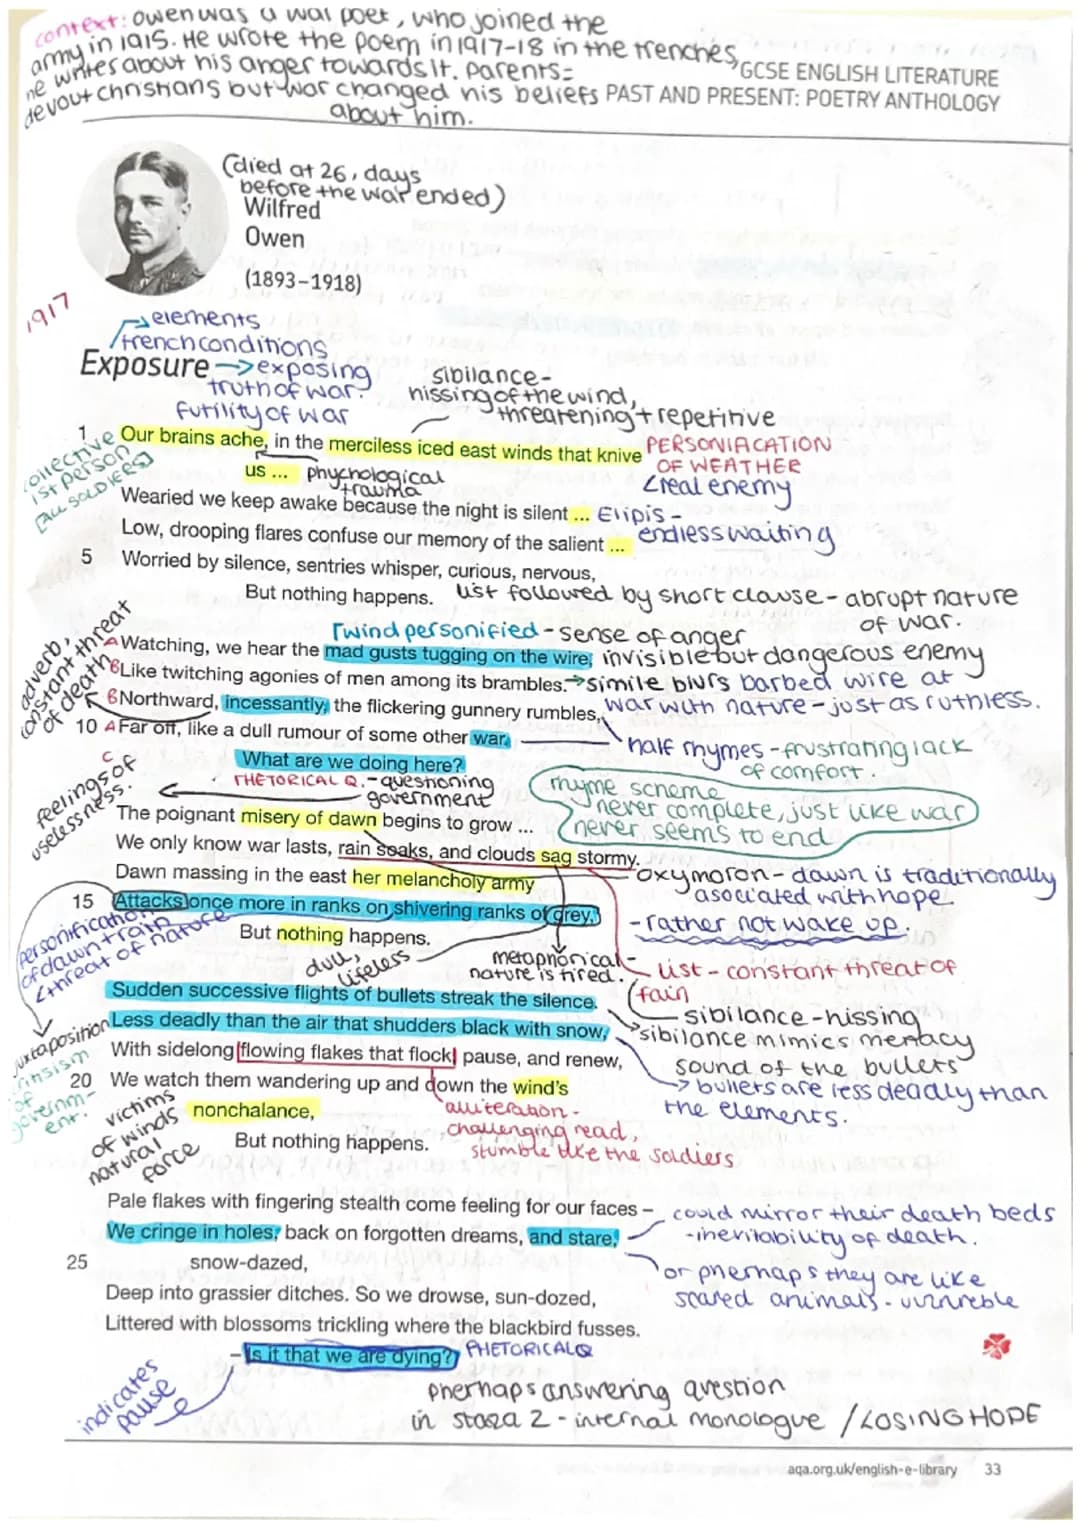 context: Owen was a war poet, who joined the
army in 1915. He wrote the poem in 1917-18 in the trenches,
he writes about his anger towards it. parents=
devout christians but war changed his beliefs
about him.
GCSE ENGLISH LITERATURE
PAST AND PRESENT: POETRY ANTHOLOGY
(died at 26, days
before the war ended)
Wilfred
Owen
(1893–1918)
1917
→ elements
trench conditions
Exposure → exposing
truth of war.
futility of war
sibilance-
hissing of the wind,
threatening + repetitive
collective
1st person
[ALL SOLDIERS]
1 Our brains ache, in the merciless iced east winds that knive
us ...
PERSONIFICATION
OF WEATHER
<real enemy
phychological
trauma
Wearied we keep awake because the night is silent ...
Elipis-
endless waiting
Low, drooping flares confuse our memory of the salient ...
5 Worried by silence, sentries whisper, curious, nervous,
But nothing happens.
list followed by short clause - abrupt nature
of war.
wind personified - sense of anger
invisible but dangerous enemy
adverb,
constant threat
of death
A Watching, we hear the mad gusts tugging on the wire,
B Like twitching agonies of men among its brambles.
→ simile blurs barbed wire at
war with nature - just as ruthless.
B Northward, incessantly, the flickering gunnery rumbles,
10 A Far off, like a dull rumour of some other war.
half rhymes - frustrating lack
of comfort.
C What are we doing here?
RHETORICAL Q. - questioning
government
feelings of
uselessness.
rhyme scheme
never complete, just like war
never seems to end
The poignant misery of dawn begins to grow ...
We only know war lasts, rain soaks, and clouds sag stormy.
Dawn massing in the east her melancholy army
oxymoron - dawn is traditionally
asociated with hope.
- rather not wake up.
15 Attacks once more in ranks on shivering ranks of grey,
But nothing happens.
personification
of dawn + rain
<threat of nature
dull,
lifeless
metaphorical-
nature is tired.
list - constant threat of
rain
Sudden successive flights of bullets streak the silence.
sibilance - hissing
sibilance mimics menacy
sound of the bullets
Less deadly than the air that shudders black with snow,
→ bullets are less deadly than
the elements.
juxtaposition
of
governm-
ent.
With sidelong flowing flakes that flock, pause, and renew,
20 We watch them wandering up and down the wind's
nonchalance,
But nothing happens.
alliteration -
challenging read,
stumble like the soldiers
victims
of winds
natural
force
Pale flakes with fingering stealth come feeling for our faces –
We cringe in holes, back on forgotten dreams, and stare,
25 snow-dazed,
could mirror their death beds
- inevitability of death.
or pherhaps they are like
scared animals - vulnreble
Deep into grassier ditches. So we drowse, sun-dozed,
Littered with blossoms trickling where the blackbird fusses.
– Is it that we are dying?
RHETORICAL Q
indicates
pause
pherhaps answering question
in staza 2 - internal monologue / LOSING HOPE
aqa.org.uk/english-e-library 33